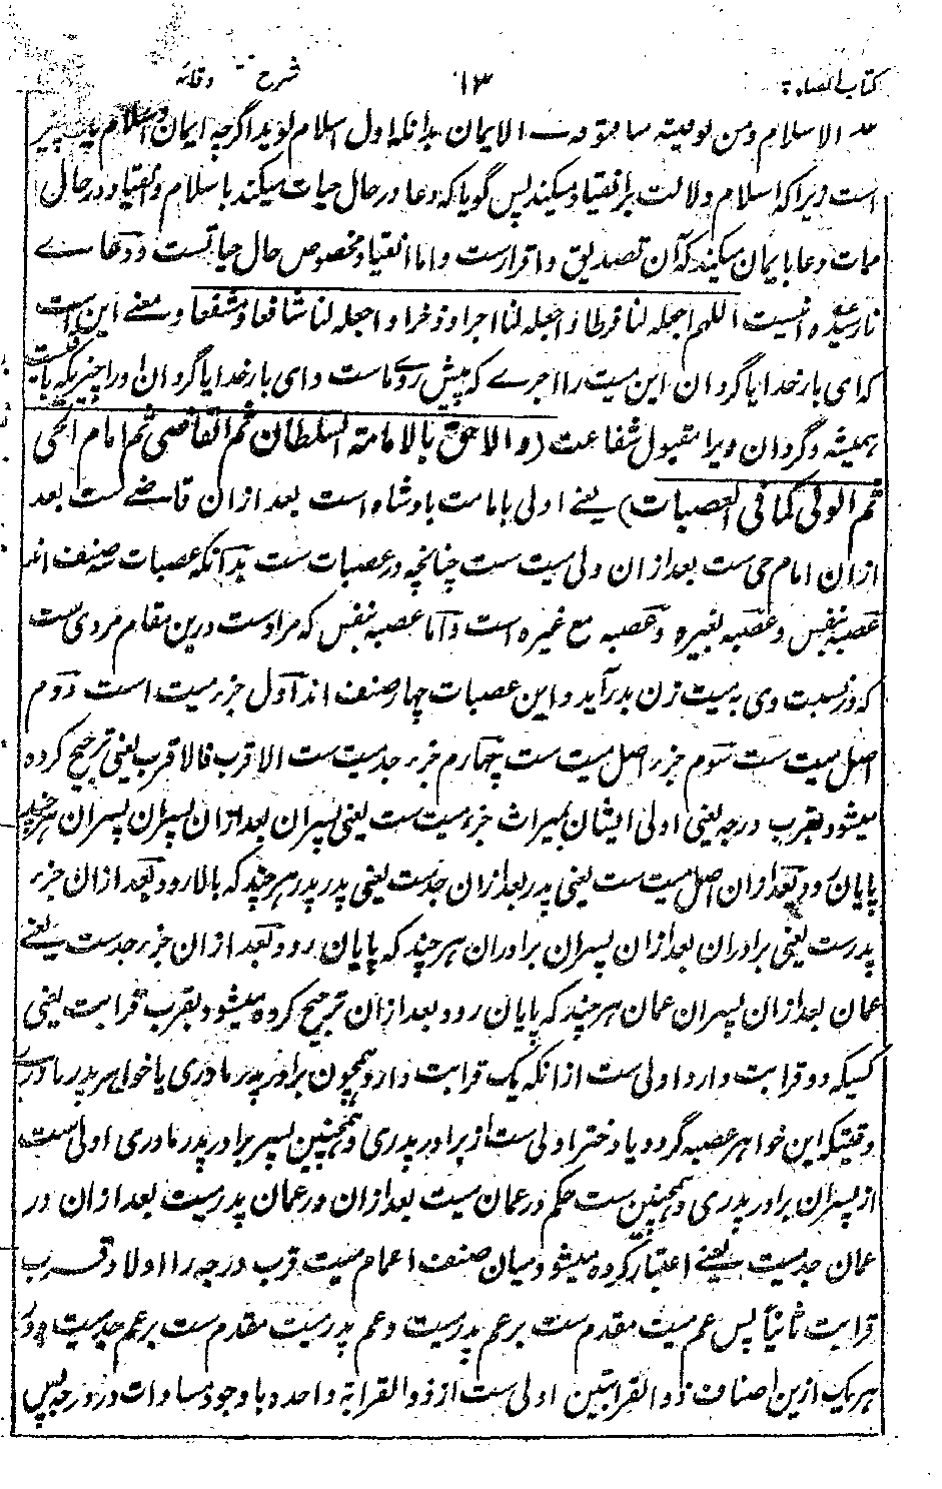 کتاب الصلوٰة ۱۳ شرح وقایه
الاسلام ومن توفیته منا فتوفه علی الایمان بدانکه اول اسلام گوید اگرچه ایمان و اسلام یک چیز
است زیراکه اسلام دلالت بر انقیاد میکند پس گویا که دعا در حال حیات میکند باسلام و انقیاد و در حال
ممات دعا بایمان میکند که آن تصدیق و اقرارست و اما انقیاد مخصوص حال حیاتست و دعاے
نارسیده اینست اللهم اجعله لنا فرطا و اجعله لنا اجرا و ذخرا و اجعله لنا شافعا و مشفعا و معنے این است
که ای بار خدایا گردان این میت را اجرے که پیش روے ماست و ای بار خدایا گردان او را چیزیکه باقیست
همیشه و گردان ویرا مقبول شفاعت (والاحق بالامامة السلطان ثم القاضی ثم امام الحی
ثم الولی کما فی العصبات) یعنے اولی بامامت بادشاه است بعد ازان قاضے ست بعد
ازان امام حی ست بعد ازان ولی میت ست چنانچه در عصبات ست بدانکه عصبات سه صنف اند
عصبه بنفس و عصبه بغیره و عصبه مع غیره است و اما عصبه بنفس که مرادست درین مقام مردی ست
که در نسبت وی به میت زن بدرآید و این عصبات چهار صنف اند اول جزء میت است دوم
اصل میت ست سوم جزء اصل میت ست چهارم جزء جد میت ست الاقرب فالاقرب یعنی ترجیح کرده
میشود بقرب درجه یعنی اولی ایشان بمیراث جزء میت ست یعنی پسران بعد ازان پسران پسران هرچند
پایان رود بعد ازان اصل میت ست یعنی پدر بعد ازان جدست یعنی پدر پدر هرچند که بالا رود بعد ازان جزء
پدرست یعنی برادران بعد ازان پسران برادران هرچند که پایان رود و بعد ازان جزء جدست یعنے
عمان بعد ازان پسران عمان هرچند که پایان رود بعد ازان ترجیح کرده میشود بقرب قرابت یعنی
کسیکه دو قرابت دارد اولی ست ازانکه یک قرابت دارد همچون برادر پدر مادری یا خواهر پدر مادری
وقتیکه این خواهر عصبه گردد با دختر اولی ست از برادر پدری و همچنین پسر برادر پدر مادری اولی ست
از پسران برادر پدری و همچنین ست حکم در عمان میت بعد ازان در عمان پدر میت بعد ازان در
عمان جد میت یعنے اعتبار کرده میشود میان صنف اعمام میت قرب درجه را اولا و قرب
قرابت ثانیاً پس عم میت مقدم ست بر عم پدر میت و عم پدر میت مقدم ست بر عم جد میت و در
هریک ازین اصناف ذو القرابتین اولی ست از ذو القرابة واحده با وجود مساوات در درجه پس